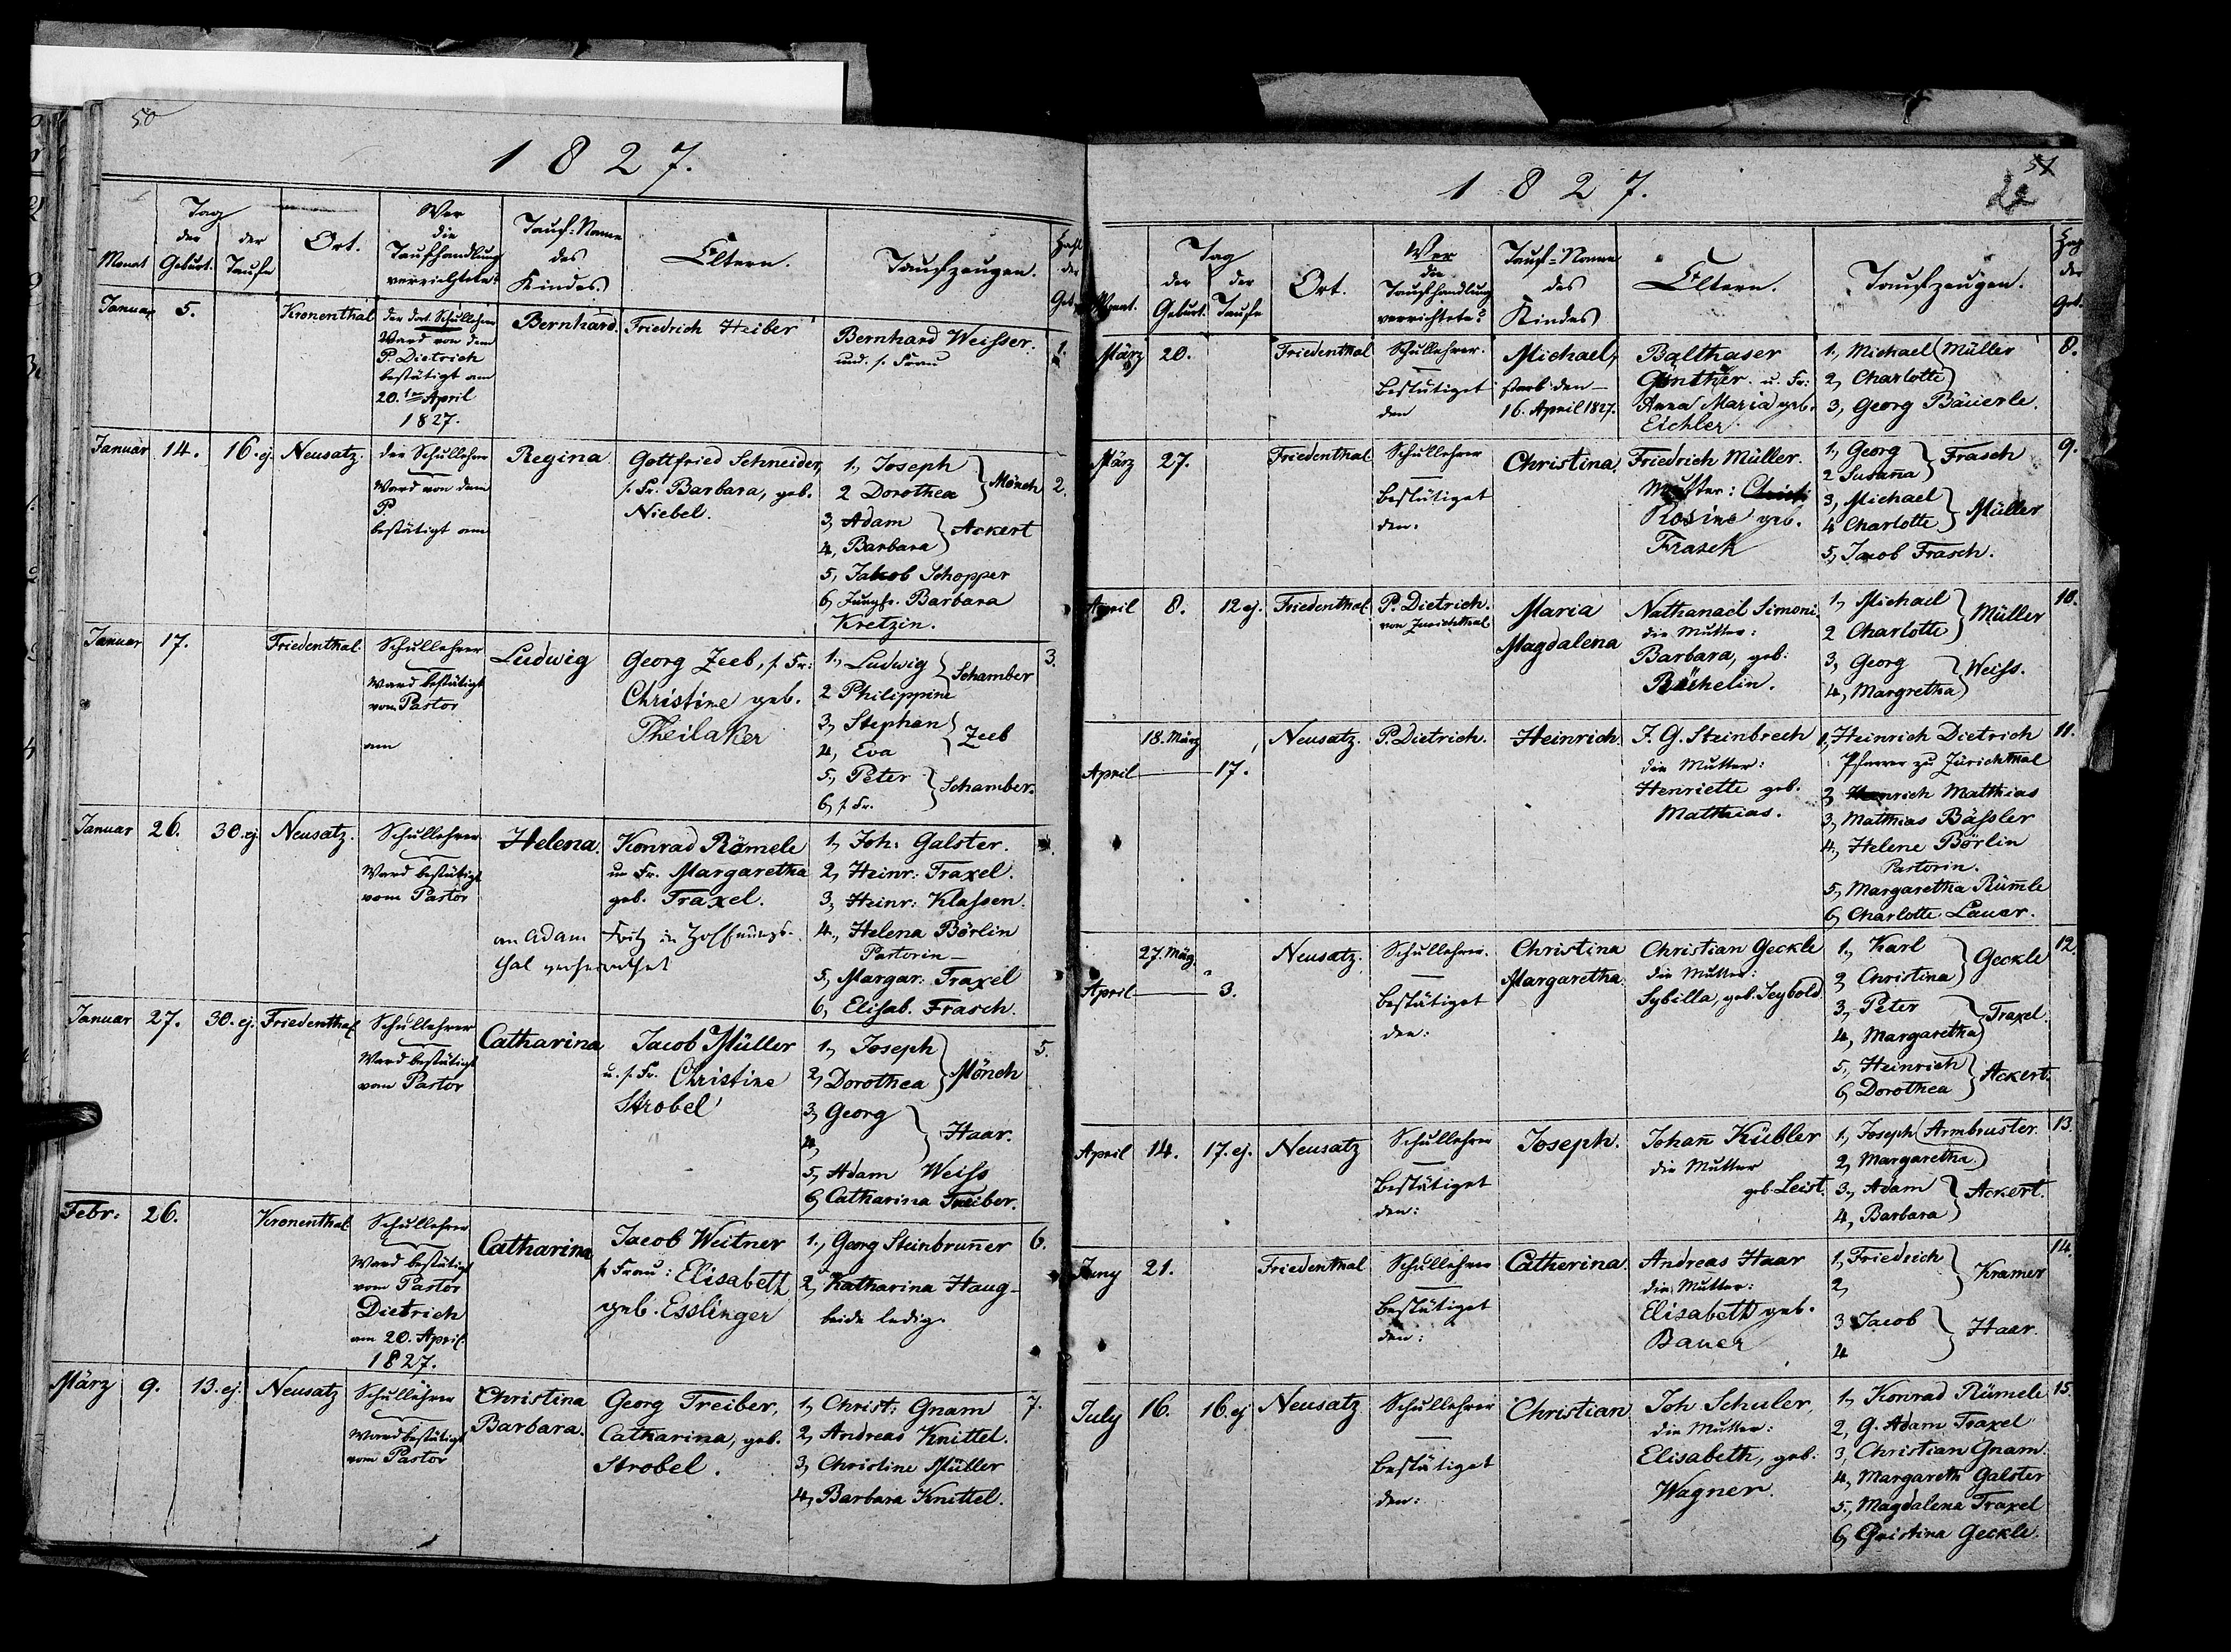 50
1827.
Monat
Tag
der Geburt.
der Taufe
Ort.
Wer die Taufhandlung verrichtete?
Tauf-Name des Kindes
Eltern.
Taufzeugen.
Zahl der Geb.
Januar 5. Kronenthal der dort. Schullehrer Bernhard. Friedrich Heiber Bernhard Weisser. 1.
Ward von dem und s. Frau
P. Dietrich
bestätigt am
20.ten April
1827.
Januar 14. 16. ej. Neusatz. der Schullehrer Regina Gottfried Schneider, 1, Joseph Mönch 2.
Ward von dem s. Fr. Barbara, geb. 2 Dorothea
P. Niebel. 3, Adam Ackert
bestätigt am 4, Barbara
5, Jakob Schopper
6, Jungfr. Barbara
Kretzin.
Januar 17. Friedenthal Schullehrer Ludwig Georg Zeeb, s. Fr: 1, Ludwig Schamber 3.
Ward bestätigt Christine geb. 2 Philippine
vom Pastor Theilaker 3, Stephan Zeeb
am 4, Eva
5, Peter Schamber.
6, s. Fr.
Januar 26. 30. ej. Neusatz. Schullehrer Helena. Konrad Rämele 1, Joh: Galster.
Ward bestätigt u. Fr. Margaretha 2, Heinr: Traxel.
vom Pastor geb. Traxel. 3, Heinr: Klassen.
an Adam Fritz in Hoffnungs- 4, Helena Börlin
thal verheirathet Pastorin
5, Margar: Traxel
6, Elisab. Frasch.
Januar 27. 30. ej. Friedenthal Schullehrer Catharina Jacob Müller 1, Joseph Mönch 5.
Ward bestätigt u. s. Fr. Christine 2, Dorothea
vom Pastor Strobel 3, Georg Haar.
4,
5, Adam Weiss
6, Catharina Treiber.
Febr: 26. Kronenthal Schullehrer Catharina Jacob Weitner 1, Georg Steinbrunner 6.
Ward bestätigt s. Frau: Elisabeth 2, Katharina Haug
vom Pastor geb. Esslinger beide ledig.
Dietrich
am 20. April.
1827.
März 9. 13. ej. Neusatz Schullehrer Christina Georg Treiber, 1, Christ: Gnam 7.
Ward bestätigt Barbara. Catharina, geb. 2, Andreas Knittel.
vom Pastor Strobel. 3, Christine Müller
4, Barbara Knittel.
51
22
1827.
Monat.
Tag
der Geburt.
der Taufe
Ort.
Wer die Taufhandlung verrichtete?
Tauf-Name des Kindes
Eltern.
Taufzeugen.
Zahl der Geb.
März 20. Friedenthal Schullehrer. Michael, Balthaser 1, Michael Müller 8.
Bestätiget starb den Günther u. Fr: 2, Charlotte
den 16. April 1827. Anna Maria geb. 3, Georg Bäuerle.
Eichler
März 27. Friedenthal Schullehrer Christina. Friedrich Müller. 1, Georg Frasch 9.
Bestätiget Mutter: Christi 2 Susana
den: Rosine geb. 3, Michael Müller
Frasch 4 Charlotte
5, Jacob Frasch.
April 8. 12 ej. Friedenthal P. Dietrich. Maria Nathanael Simoni. 1, Michael Müller 10.
von Zürichthal Magdalena die Mutter: 2 Charlotte
Barbara, geb. 3, Georg Weiss.
4, Margretha
18. März Neusatz. P. Dietrich. Heinrich J. G. Steinbrech 1, Heinrich Dietrich 11.
April 17. die Mutter: Pfarrer zu Zürichthal
Henriette geb. 2, Heinrich Matthias
Matthias. 3, Matthias Bässler
4, Helene Börlin
Pastorin.
5, Margaretha Rümle
6, Charlotte Lauer.
27. März Neusatz. Schullehrer. Christina Christian Geckle 1, Karl Geckle 12.
April 3. Bestätiget Margaretha die Mutter: 2, Christina
den: Sybilla, geb. Seybold 3, Peter Traxel.
4, Margaretha
5, Heinrich Ackert.
6, Dorothea
April 14. 17. ej. Neusatz Schullehrer Joseph. Johan Kübler 1, Joseph Armbruster 13.
Bestätiget die Mutter 2, Margaretha
den: geb. Leist. 3, Adam Ackert.
4, Barbara
Juny 21. Friedenthal Schullehrer Catherina Andreas Haar 1, Friedrich Kramer 14.
Bestätiget die Mutter: 2,
den: Elisabeth geb. 3 Jacob Haar.
Bauer 4
July 16. 16. ej Neusatz Schullehrer Christian Joh Schuler, 1, Konrad Rümele 15.
Bestätiget die Mutter: 2, G. Adam Traxel
den: Elisabeth, geb. 3, Christian Gnam.
Wagner. 4, Margareth Galster
5, Magdalena Traxel
6, Christina Geckle.